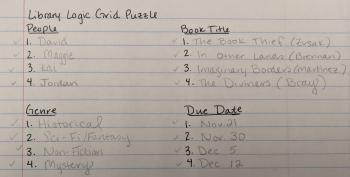 Library Logic Grid Puzzle
People
✓ 1. David
✓ 2. Maggie
✓ 3. Kai
✓ 4. Jordan
Book Title
✓ 1. The Book Thief (Zusak)
✓ 2. In Other Lands (Brennan)
✓ 3. Imaginary Borders (Martinez)
✓ 4. The Diviners (Bray)
Genre
✓ 1. Historical
✓ 2. Sci-Fi/Fantasy
✓ 3. Non-Fiction
✓ 4. Mystery
Due Date
✓ 1. Nov. 21
✓ 2. Nov. 30
✓ 3. Dec 5
✓ 4. Dec 12